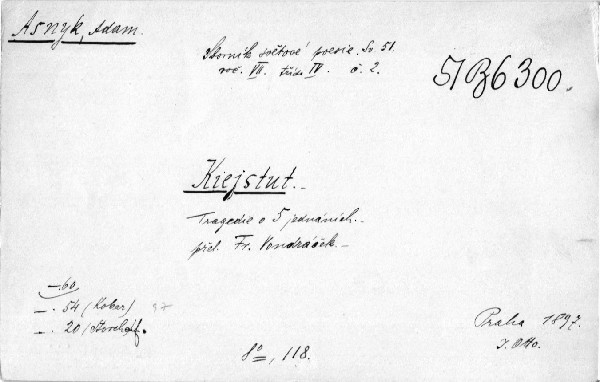 Asnyk, Adam.
Sborník světové poesie. Sv. 51.
roč. VII. třída IV. č. 2.
51 B 6300.
Kiejstut.
Tragedie o 5 jednáních.
přel. Fr. Vondráček.
—.60
—.54 (Kober) 97
—.20
Praha 1897.
J. Otto.
8°, 118.